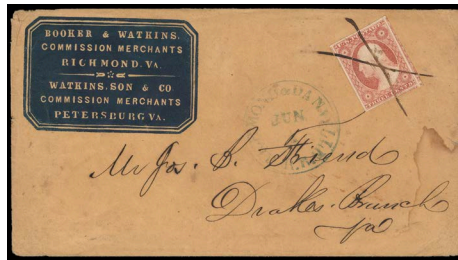 BOOKER & WATKINS.
COMMISSION MERCHANTS
RICHMOND. VA.
WATKINS. SON & CO
COMMISSION MERCHANTS
PETERSBURG VA.
& DANVILLE
JUN
Mr Jos. S. Friend
Drakes. Branch
Va